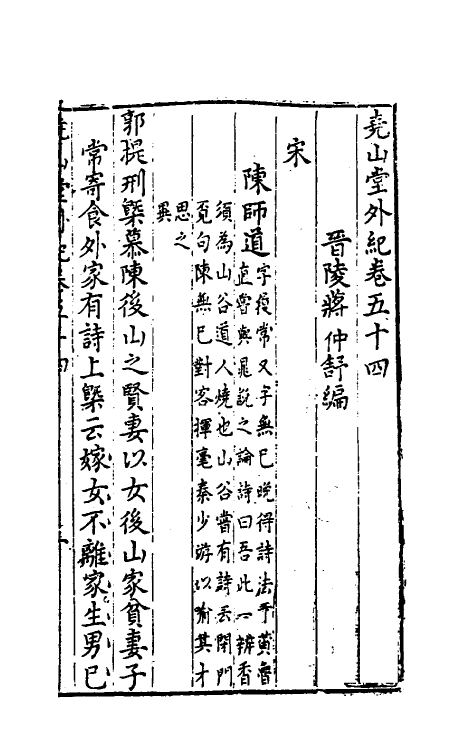 堯山堂外紀卷五十四
晉陵蔣仲舒編
宋
陳師道
字履常又字無巳晚得詩法于黃魯
直嘗與晁說之論詩曰吾此一辨香
須為山谷道人燒也山谷嘗有詩云閉門
覓句陳無巳對客揮毫秦少游以喻其才
思之
異
郭提刑槩慕陳後山之賢妻以女後山家貧妻子
常寄食外家有詩上槩云嫁女不離家生男巳
堯山堂外紀卷五十四